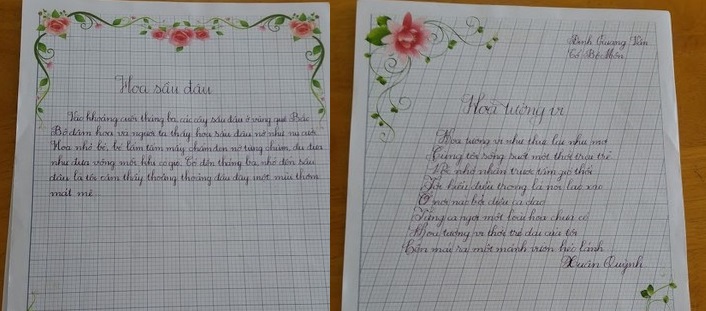 Hoa sầu đâu
Vào khoảng cuối tháng ba, các cây sầu đâu ở vùng quê Bắc
Bộ đâm hoa và người ta thấy hoa sầu đâu nở như nụ cười
Hoa nhỏ bé, bé lấm tấm mấy chấm đen nở từng chùm, đu đưa
như đưa võng mỗi khi có gió. Cứ đến tháng ba, nhớ đến sầu
đâu là tôi cảm thấy thoang thoảng đâu đây một mùi thơm
mát mẻ
Đinh Quang Văn
Tổ: Bộ Môn
Hoa tường vi
Hoa tường vi như thực lại như mơ
Cùng tôi sống suốt một thời trai trẻ
nhỏ nhắn trước gió thổi
Tôi hiểu điều trong lá nói lao xao
Ở nơi nào bởi điều ca dao
Tặng ca ngợi một loài hoa chưa có
Hoa tường vi thời trẻ dại của tôi
Còn mãi ra một mảnh vườn hẻo lánh
Xuân Quỳnh